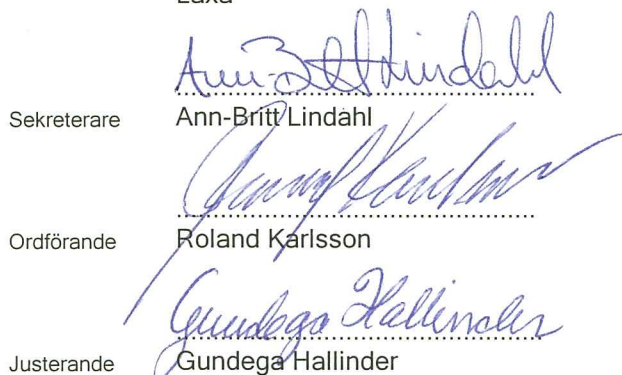 Laxå
Ann-Britt Lindahl
Sekreterare Ann-Britt Lindahl
Ordförande Roland Karlsson
Gundega Hallinder
Justerande Gundega Hallinder